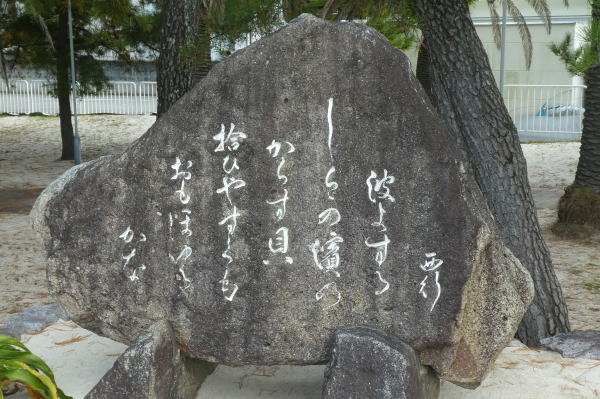 西行
波よする
しらゝの濱の
からす貝
拾ひやすくも
おもほゆる
かな